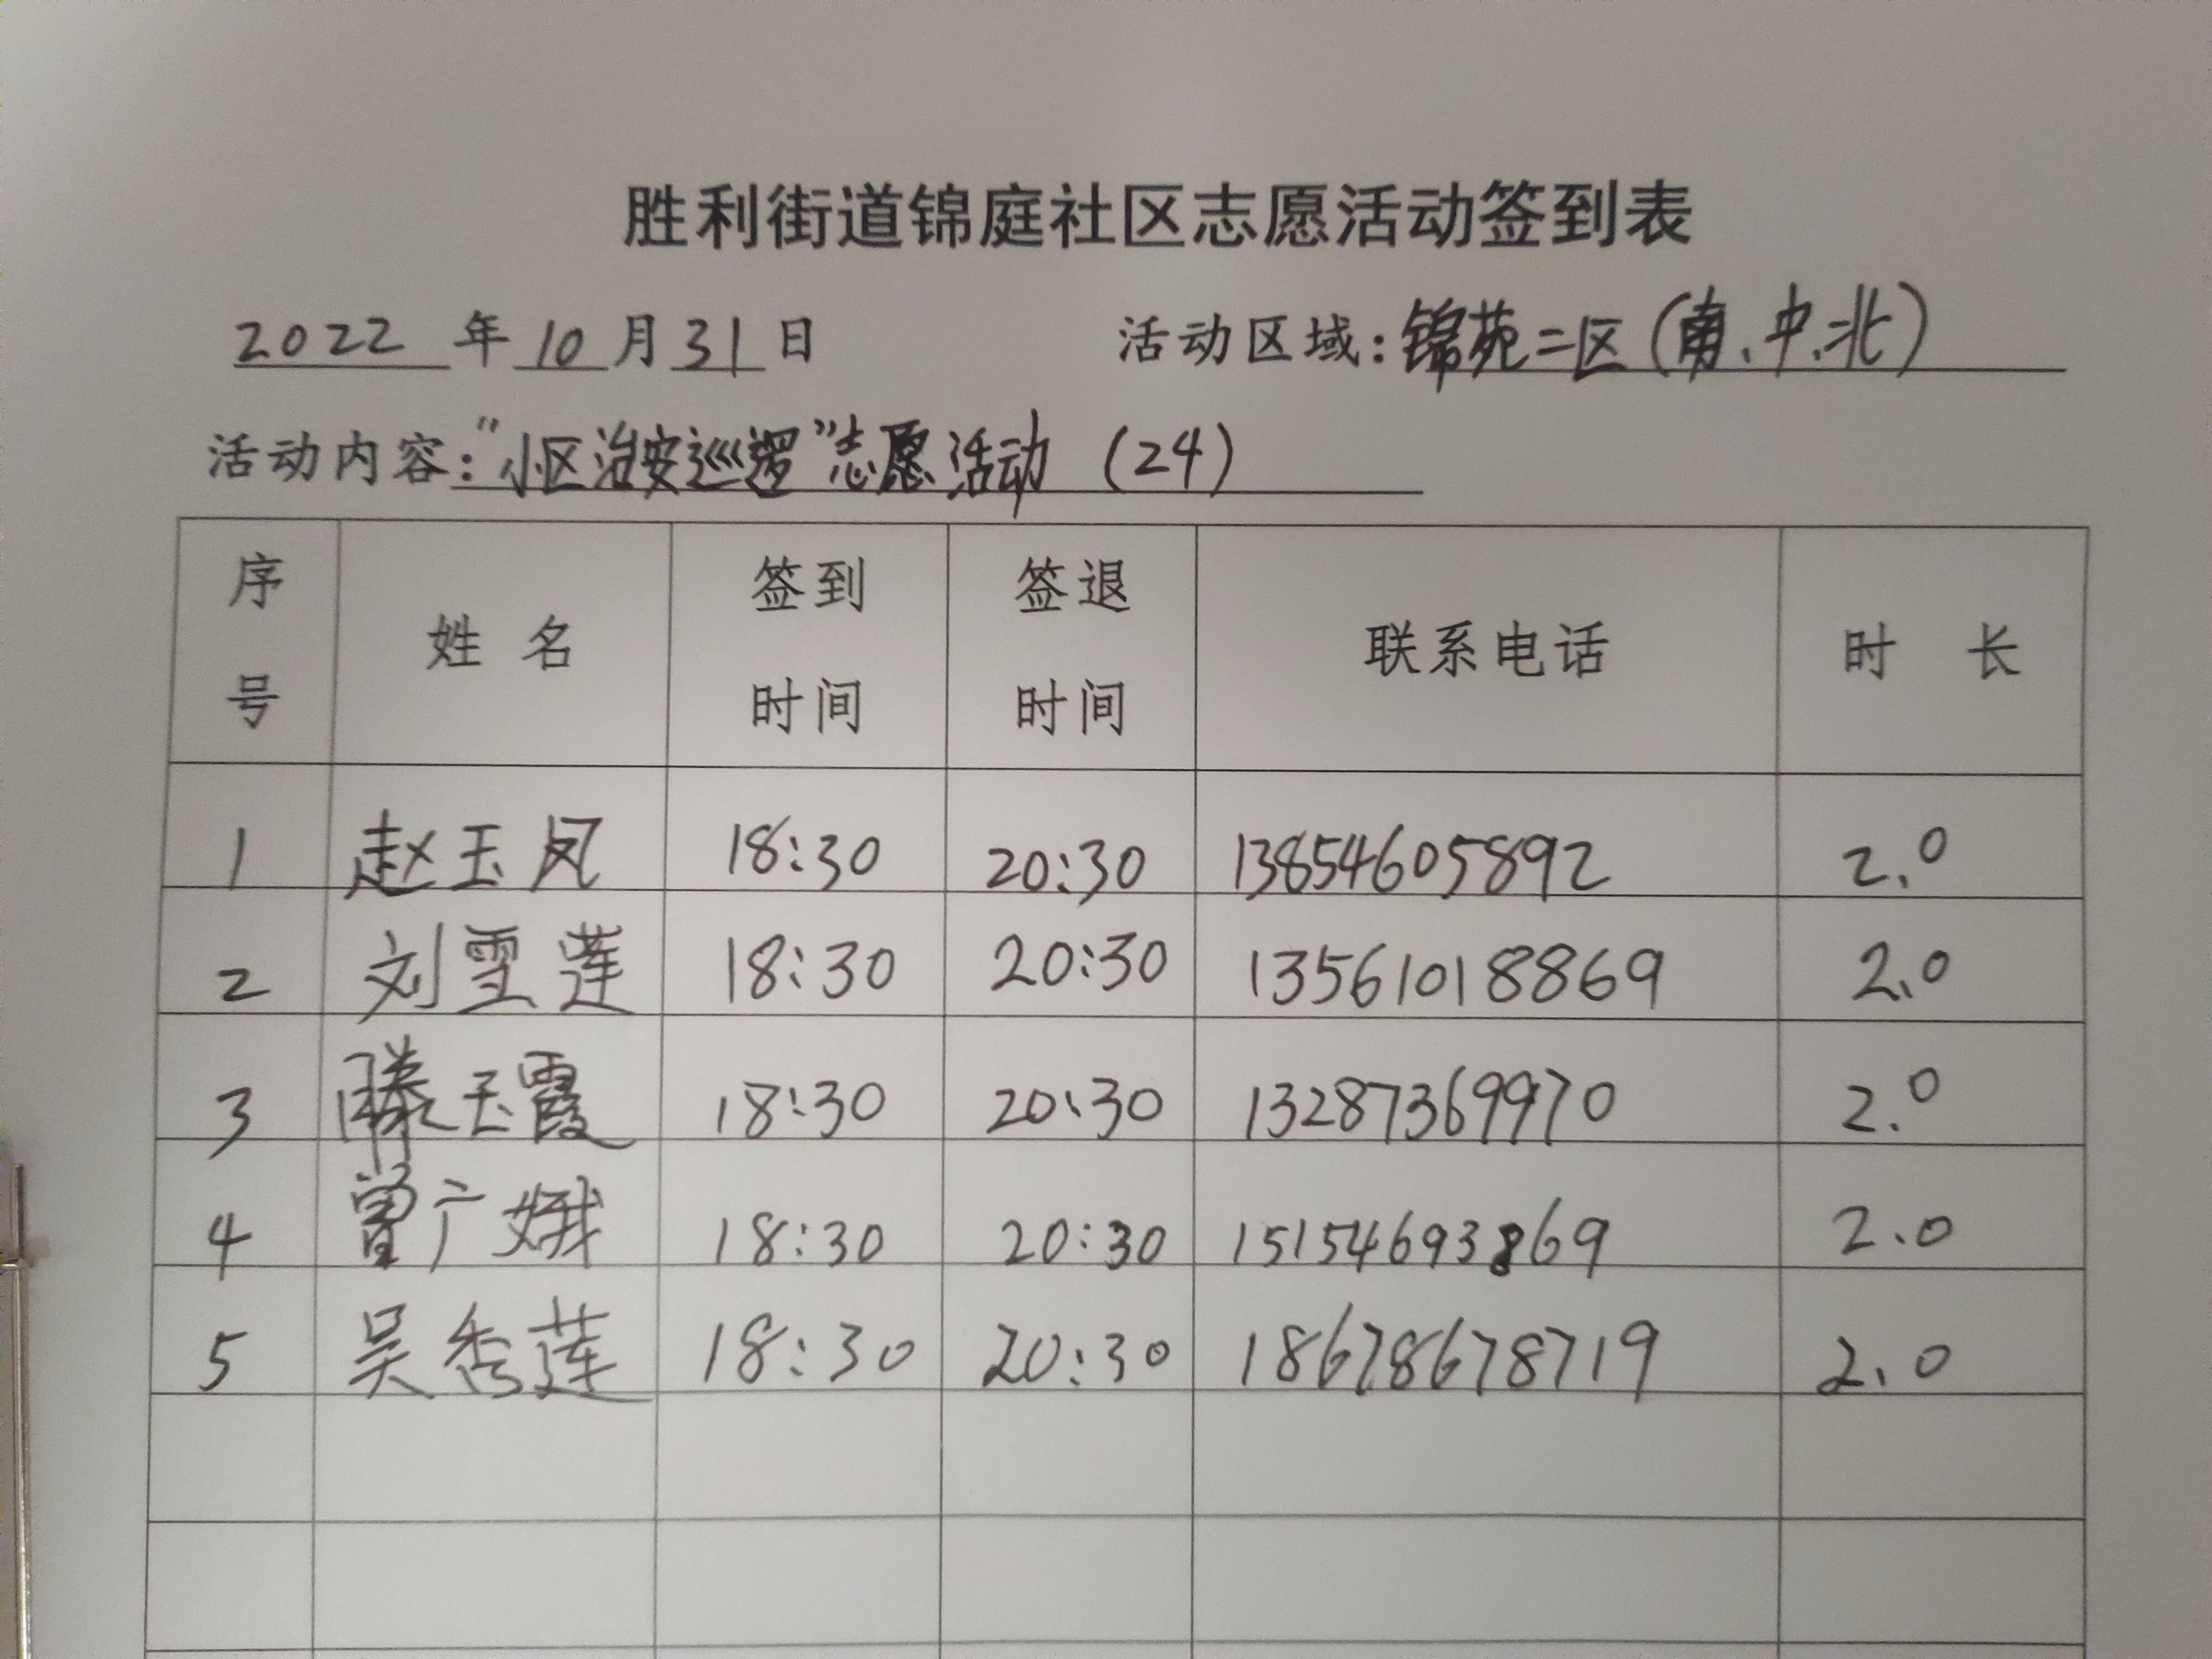 胜利街道锦庭社区志愿活动签到表
2022 年 10 月 31 日 活动区域:锦苑二区(南、中、北)
活动内容:"小区治安巡逻"志愿活动 (24)
序号 姓名 签到时间 签退时间 联系电话 时长
1 赵玉凤 18:30 20:30 13854605892 2.0
2 刘雪莲 18:30 20:30 13561018869 2.0
3 滕玉霞 18:30 20:30 13287369970 2.0
4 曹广娥 18:30 20:30 15154693869 2.0
5 吴秀莲 18:30 20:30 18678678719 2.0